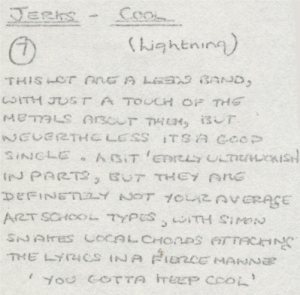 JERKS - COOL
7 (Lightning)
THIS LOT ARE A LEEDS BAND,
WITH JUST A TOUCH OF THE
METALS ABOUT THEM, BUT
NEVERTHELESS ITS A GOOD
SINGLE. A BIT 'EARLY ULTRAVOXISH
IN PARTS, BUT THEY ARE
DEFINETELY NOT YOUR AVERAGE
ART SCHOOL TYPES, WITH SIMON
SNAKES LOCAL CHORDS ATTACKING
THE LYRICS IN A FIERCE MANNER
'YOU GOTTA KEEP COOL'